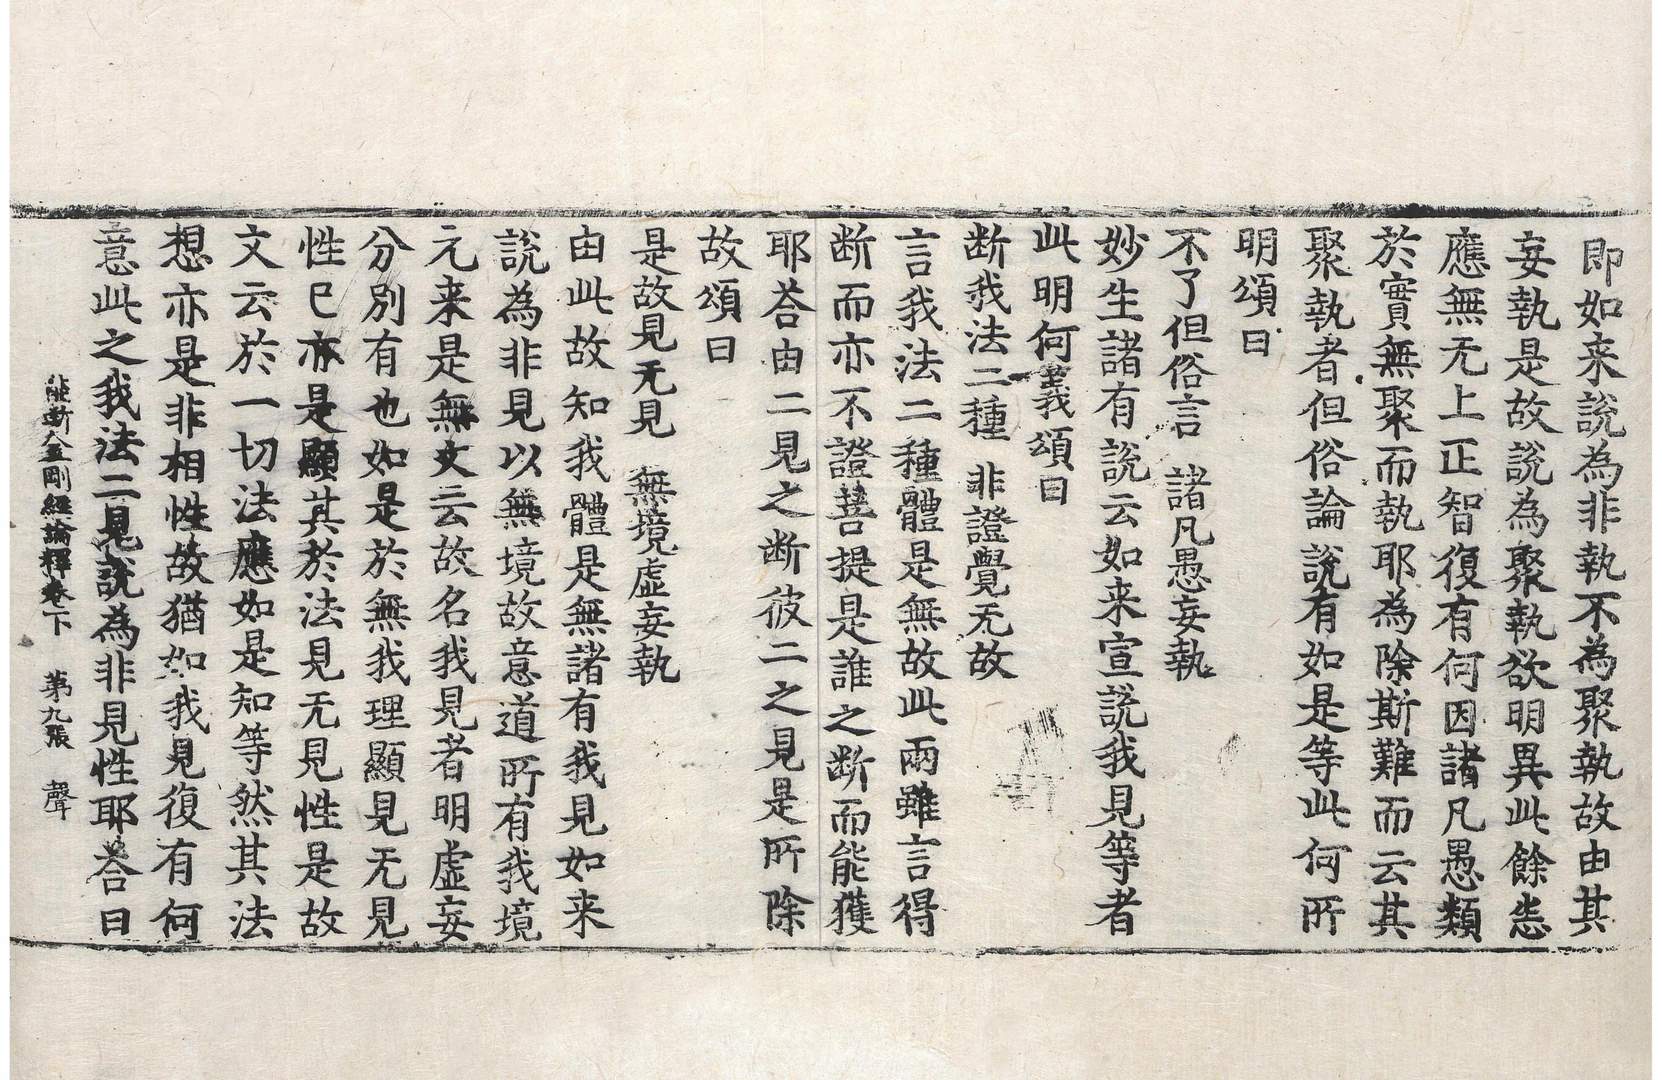 即如来說為非執不為聚執故由其
妄執是故說為聚執欲明異此餘恙
應無无上正智復有何因諸凡愚類
於實無聚而執耶為除斯難而云其
聚執者但俗論說有如是等此何所
明頌曰
不了但俗言 諸凡愚妄執
妙生諸有說云如来宣說我見等者
此明何義頌曰
断我法二種 非證覺无故
言我法二種體是無故此兩雖言得
断而亦不證菩提是誰之断而能獲
耶荅由二見之断彼二之見是所除
故頌曰
是故見无見 無境虛妄執
由此故知我體是無諸有我見如来
說為非見以無境故意道所有我境
元来是無文云故名我見者明虛妄
分別有也如是於無我理顯見无見
性已亦是顯其於法見无見性是故
文云於一切法應如是知等然其法
想亦是非相性故猶如我見復有何
意此之我法二見說為非見性耶荅曰
能断金剛經論釋卷下 第九張 聲